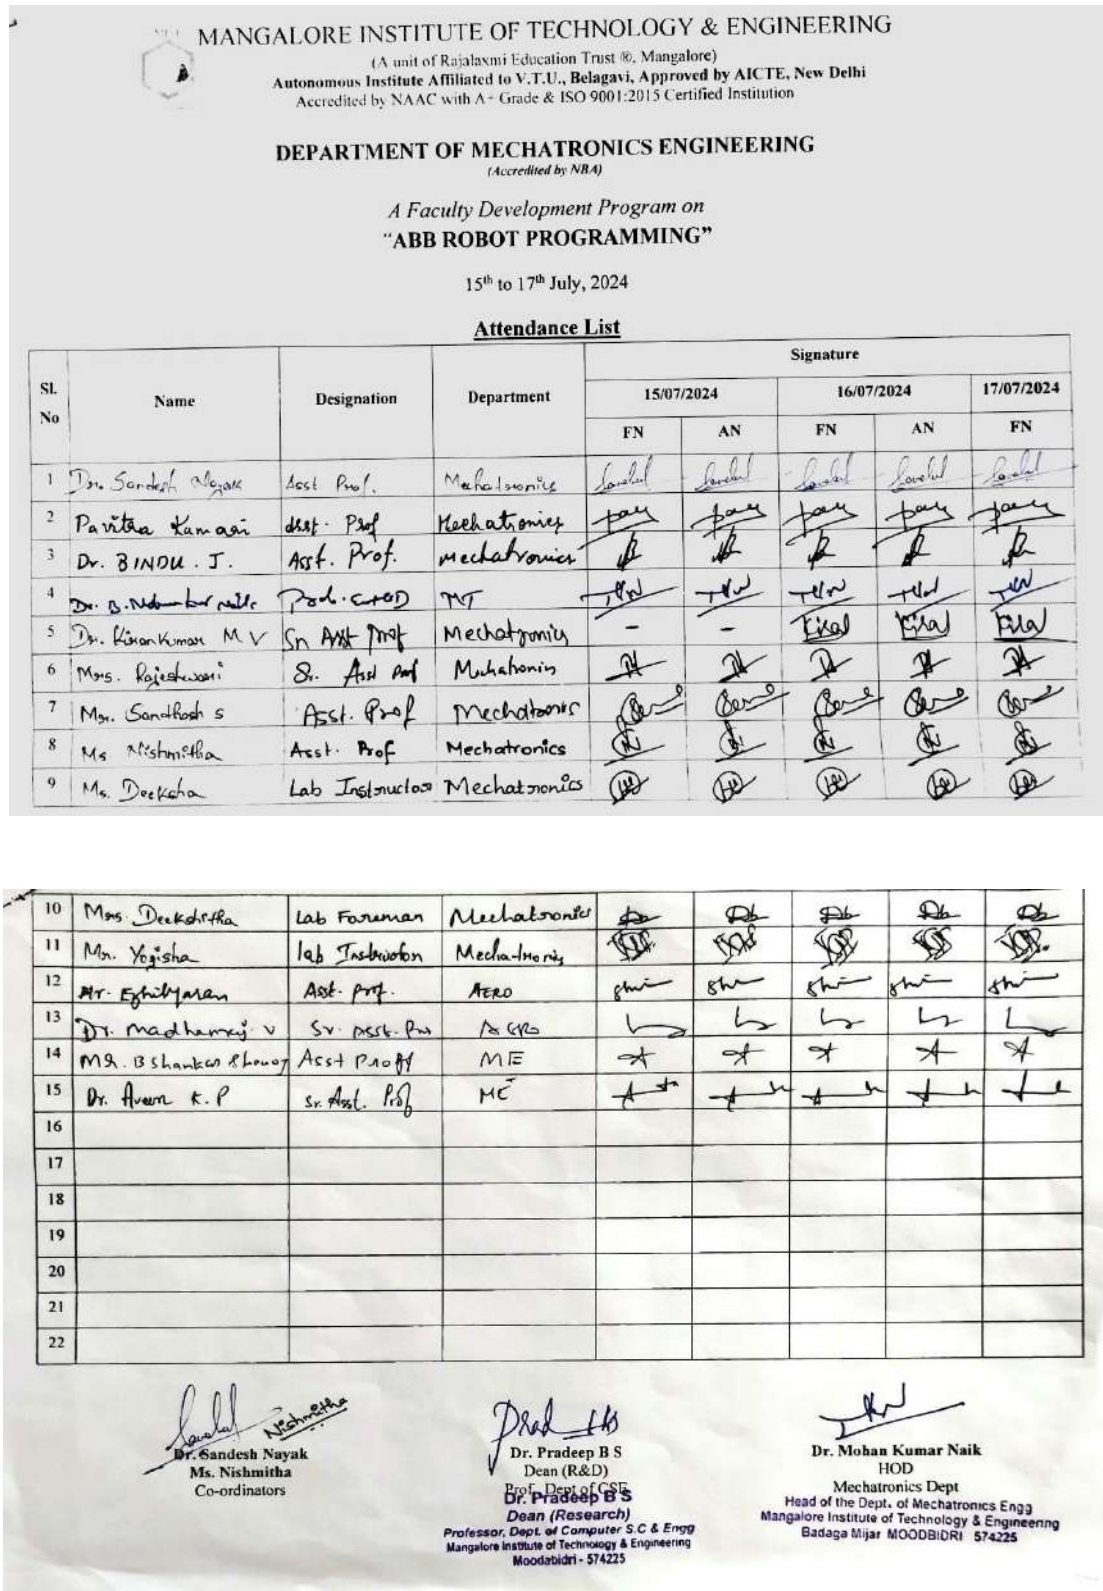 MANGALORE INSTITUTE OF TECHNOLOGY & ENGINEERING
(A unit of Rajalaxmi Education Trust ®, Mangalore)
Autonomous Institute Affiliated to V.T.U., Belagavi, Approved by AICTE, New Delhi
Accredited by NAAC with A+ Grade & ISO 9001:2015 Certified Institution
DEPARTMENT OF MECHATRONICS ENGINEERING
(Accredited by NBA)
A Faculty Development Program on
"ABB ROBOT PROGRAMMING"
15th to 17th July, 2024
Attendance List
Sl. No Name Designation Department Signature
15/07/2024 16/07/2024 17/07/2024
FN AN FN AN FN
1 Dr. Sandesh Nayak Asst Prof. Mechatronics
2 Pavitra Kamagi Asst. Prof Mechatronics
3 Dr. BINDU. J. Asst. Prof. Mechatronics
4 Dr. B. MT
5 Dr. Kirankumar M V Sn Asst Prof Mechatronics - -
6 Mrs. Rajeshwari Sr. Asst Prof Mechatronics
7 Mr. Santhosh S Asst. Prof Mechatronics
8 Ms Nishmitha Asst. Prof Mechatronics
9 Ms. Deeksha Lab Instructor Mechatronics
10 Mrs. Deekshitha Lab Foreman Mechatronics
11 Mr. Yogisha lab Instructor Mechatronics
12 Mr. Ezhilmaran Asst. prof. AERO
13 Dr. Madhanraj V Sr. Asst. Prof AERO
14 Mr. B Shankar Shenoy Asst Proff ME
15 Dr. Aveen K.P Sr. Asst. Prof ME
16
17
18
19
20
21
22
Nishmitha
Dr. Sandesh Nayak
Ms. Nishmitha
Co-ordinators
Dr. Pradeep B S
Dean (R&D)
Prof. Dept of CSE
Dr. Pradeep B S
Dean (Research)
Professor, Dept. of Computer S.C & Engg
Mangalore Institute of Technology & Engineering
Moodabidri - 574225
Dr. Mohan Kumar Naik
HOD
Mechatronics Dept
Head of the Dept. of Mechatronics Engg
Mangalore Institute of Technology & Engineering
Badaga Mijar MOODBIDRI 574225